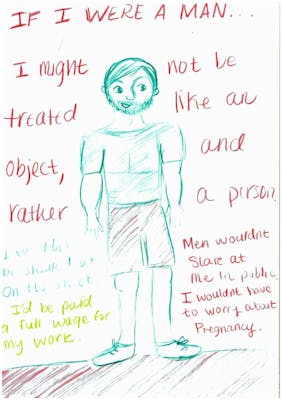 IF I WERE A MAN...
I might not be
treated like an
object, and
rather a person.
I wouldn't
be shouted at
On the street
I'd be paid
a full wage for
my work.
Men wouldnt
Stare at
Me in public
I wouldnt have
to worry about
Pregnancy.